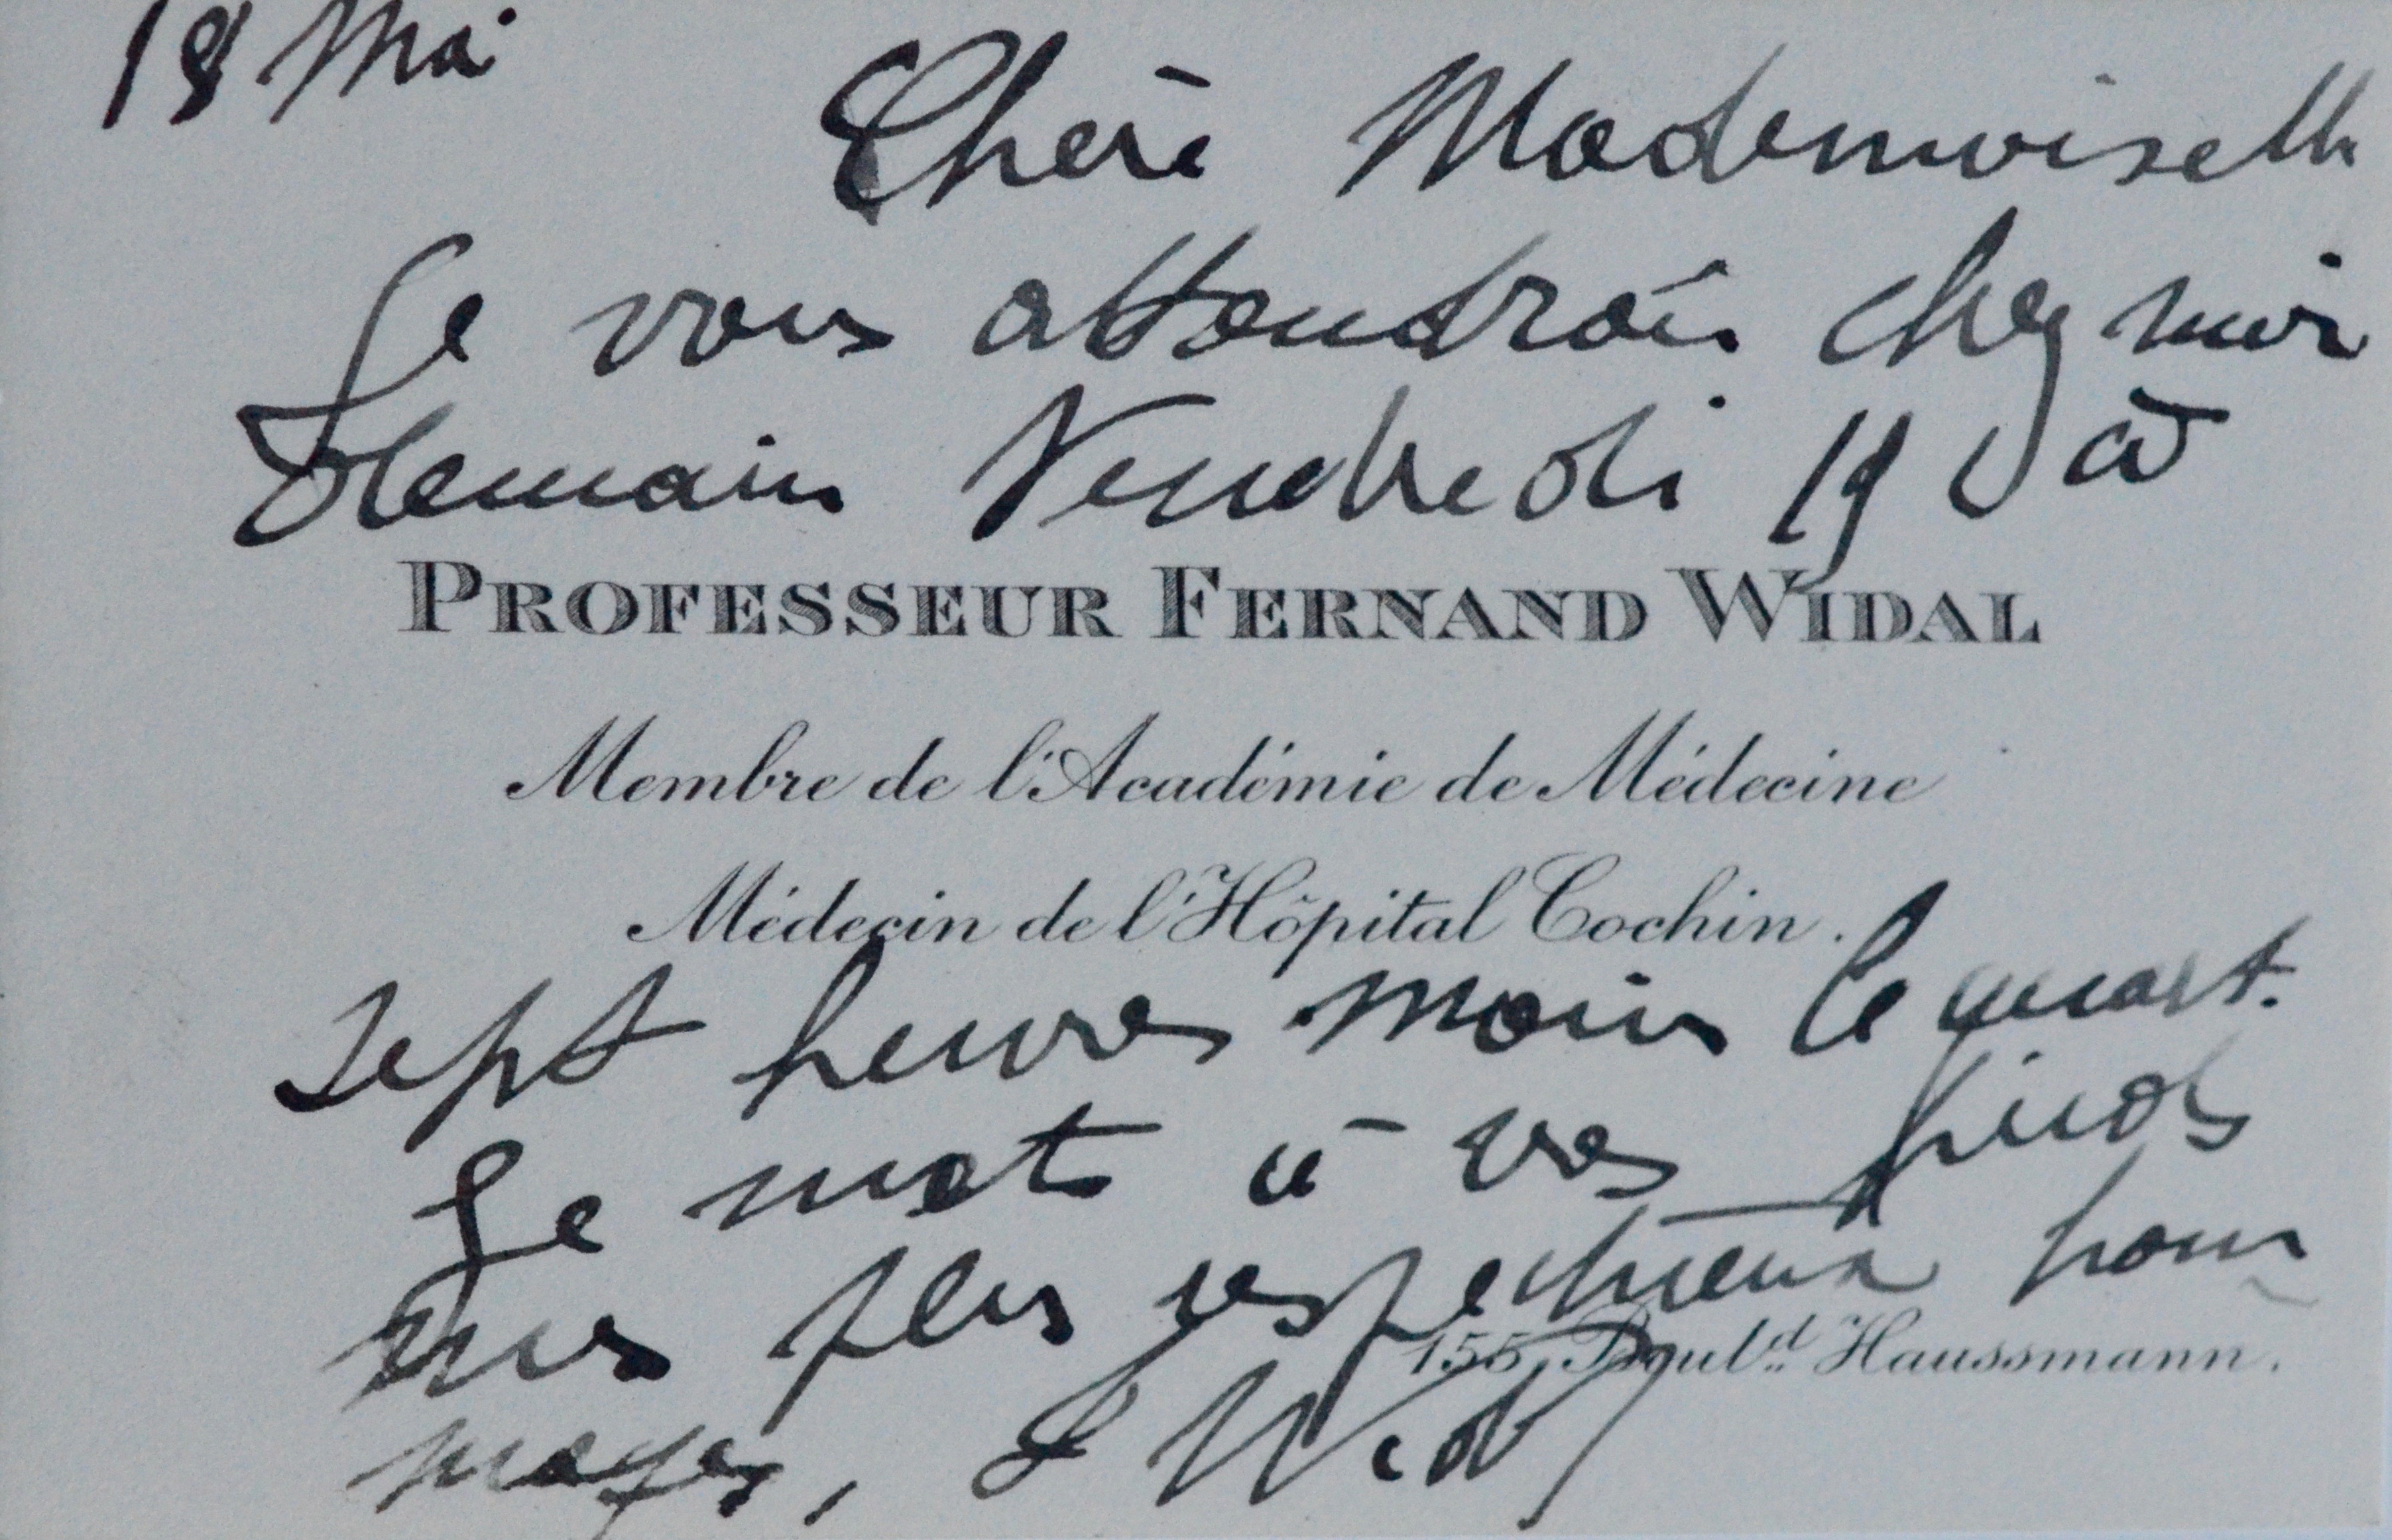 18 Mai
Chère Mademoiselle
Je vous attendrais chez moi
demain Vendredi 19 à
PROFESSEUR FERNAND WIDAL
Membre de l'Académie de Médecine
Médecin de l'Hôpital Cochin.
sept heures moins le quart.
Je mets à vos pieds
mes plus respectueux hom
155, Boul.d Haussmann.
mages, F Widal